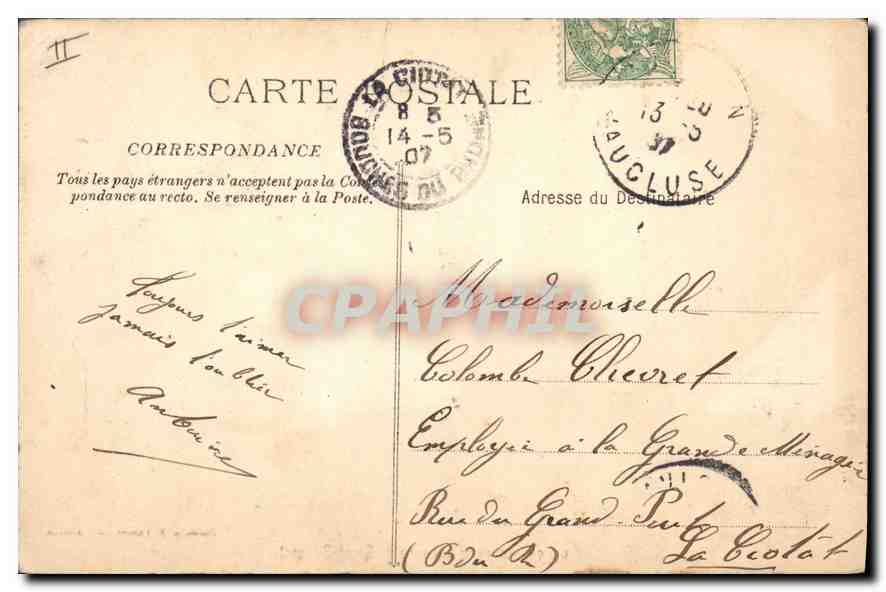 II
CARTE POSTALE
LA CIOTAT
8 5
14 - 5
07
BOUCHES DU RHONE
13
VAUCLUSE
CORRESPONDANCE
Tous les pays étrangers n'acceptent pas la Corres-
pondance au recto. Se renseigner à la Poste.
Adresse du Destinataire
Toujours t'aimer
Jamais t'oublier
Antoine
Mademoiselle
Colombe Chevret
Employée à la Grande Ménagère
Rue du Grand Pont
(B du R) La Ciotat
CPAPHIL